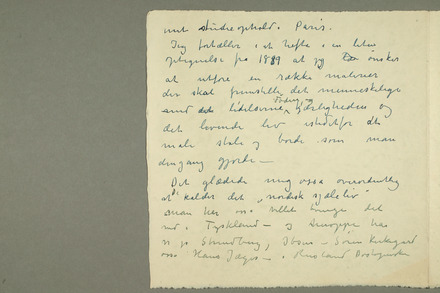 mit studieophold i Paris.
Jeg fortæller i et hefte i en liten
optegnelse fra 1889 at jeg ønsker
at utføre en række malerier
der skal fremstille det menneskelige
sind lidelserne Döden kjærligheden og
det levende liv istedetfor at
male stole og borde som man
dengang gjorde –
Det glædede mig også overordentlig
at De kalder det „nordisk sjæleliv"
man har os villet tvinge det
ned i Tyskland – og deroppe har
vi jo Strindberg, Ibsen – Sören Kirkegård
os Hans Jæger – i Rusland Dostojewski